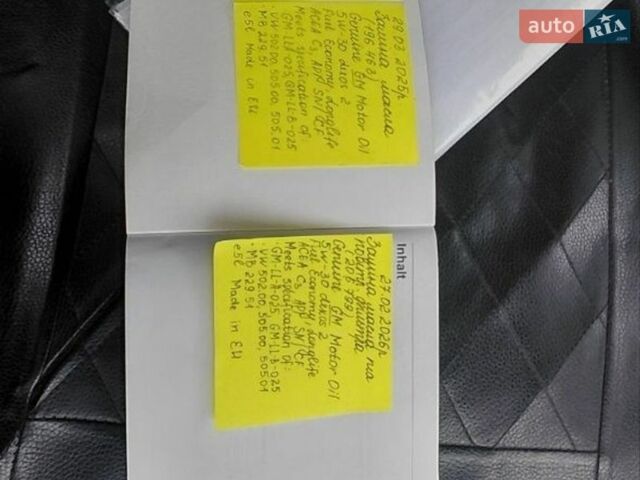 auto RIA.com
29.03 2025р
Заміна масла
(196 463)
Genuine GM Motor Oil
5W-30 dexos 2
Fuel Economy Longlife
ACEA C3 API SN/CF
Meets specification of:
GM-LL-A-025, GM-LL-B-025
• VW 502.00, 505.00, 505.01
• MB 229.51
e5l Made in EU
Inhalt
27.02.2026р
Заміна масла та
повітр. фільтра
Genuine GM Motor Oil
5W-30 dexos 2
Fuel Economy Longlife
ACEA C3 API SN/CF
Meets specification of:
• GM-LL-A-025, GM-LL-B-025
• VW 502.00, 505.00, 505.01
• MB 229.51
e5l Made in EU